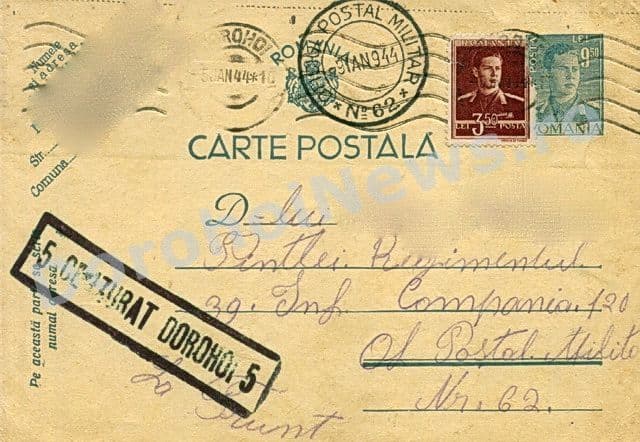 Numele
Adresa
Str.
Comuna
DOROHOI
5 IAN 44*18
ROMANIA
OFICIUL POSTAL MILITAR
IAN 944
* No 62 *
ROMANIA
3.50
LEI POSTA
LEI
9.50
ROMANIA
CARTE POSTALĂ
DorohoiNews.ro
Pe această parte se scrie
numai adresa
5 CENZURAT DOROHOI 5
D-lui
Regimentul
39. Inf. Compania 120
Of. Postal Milit
Nr. 62.
La Frunt